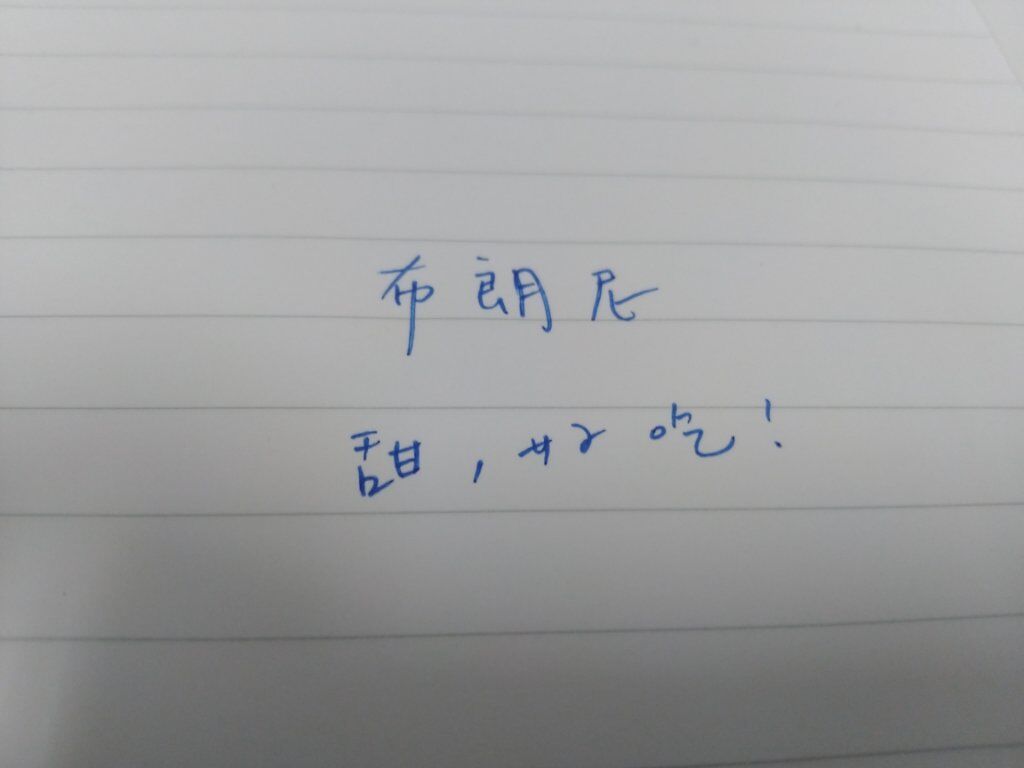 布朗尼
甜，好吃！